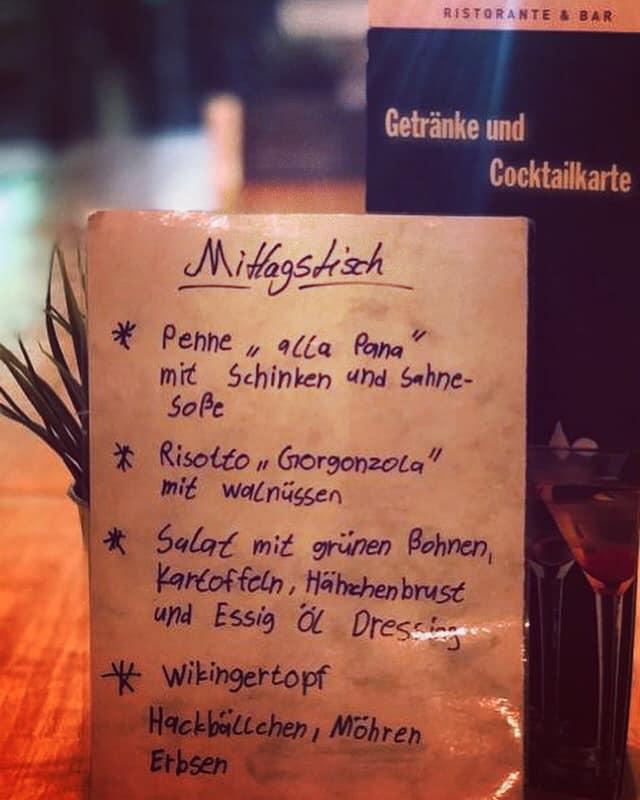 RISTORANTE & BAR
Getränke und
Cocktailkarte
Mittagstisch
* Penne „alla Pana"
mit Schinken und Sahne-
Soße
* Risotto „Gorgonzola"
mit Walnüssen
* Salat mit grünen Bohnen,
Kartoffeln, Hähnchenbrust
und Essig Öl Dressing
* Wikingertopf
Hackbällchen, Möhren
Erbsen